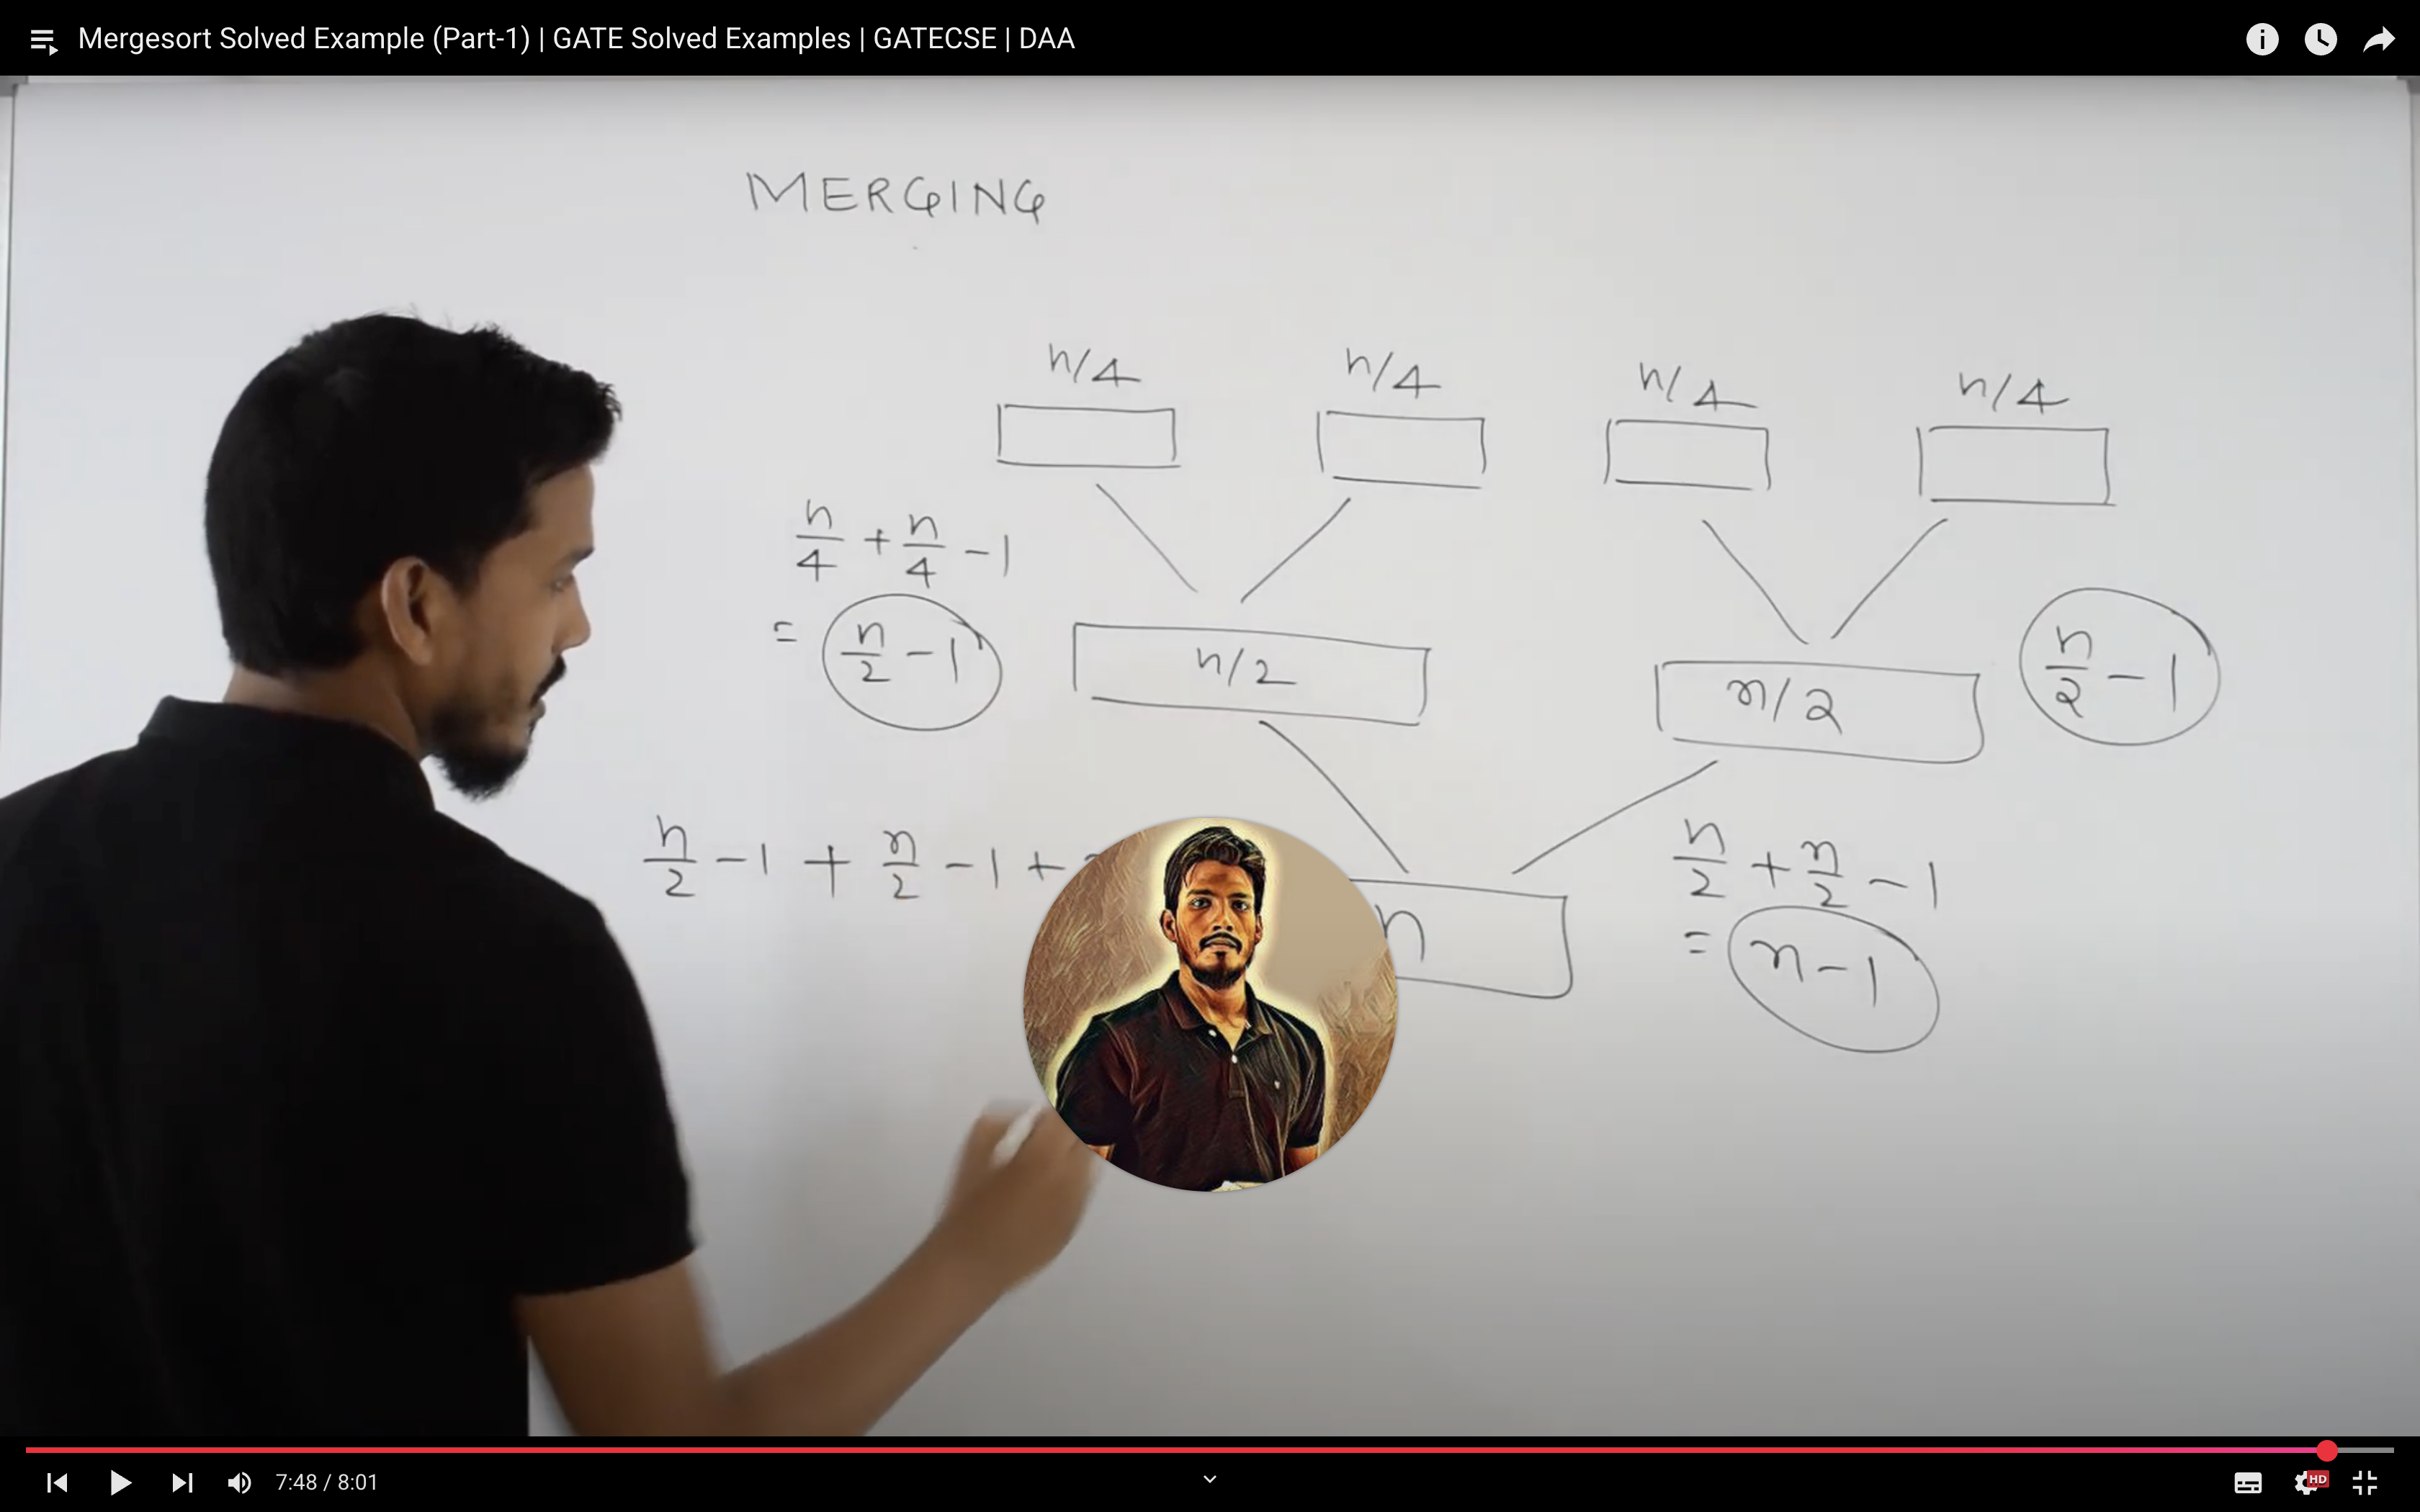 Mergesort Solved Example (Part-1) | GATE Solved Examples | GATECSE | DAA
MERGING
n/4 n/4 n/4 n/4
n/4 + n/4 - 1
= n/2 - 1
n/2
n/2
n/2 - 1
n/2 - 1 + n/2 - 1 +
n
n/2 + n/2 - 1
= n - 1
7:48 / 8:01
HD